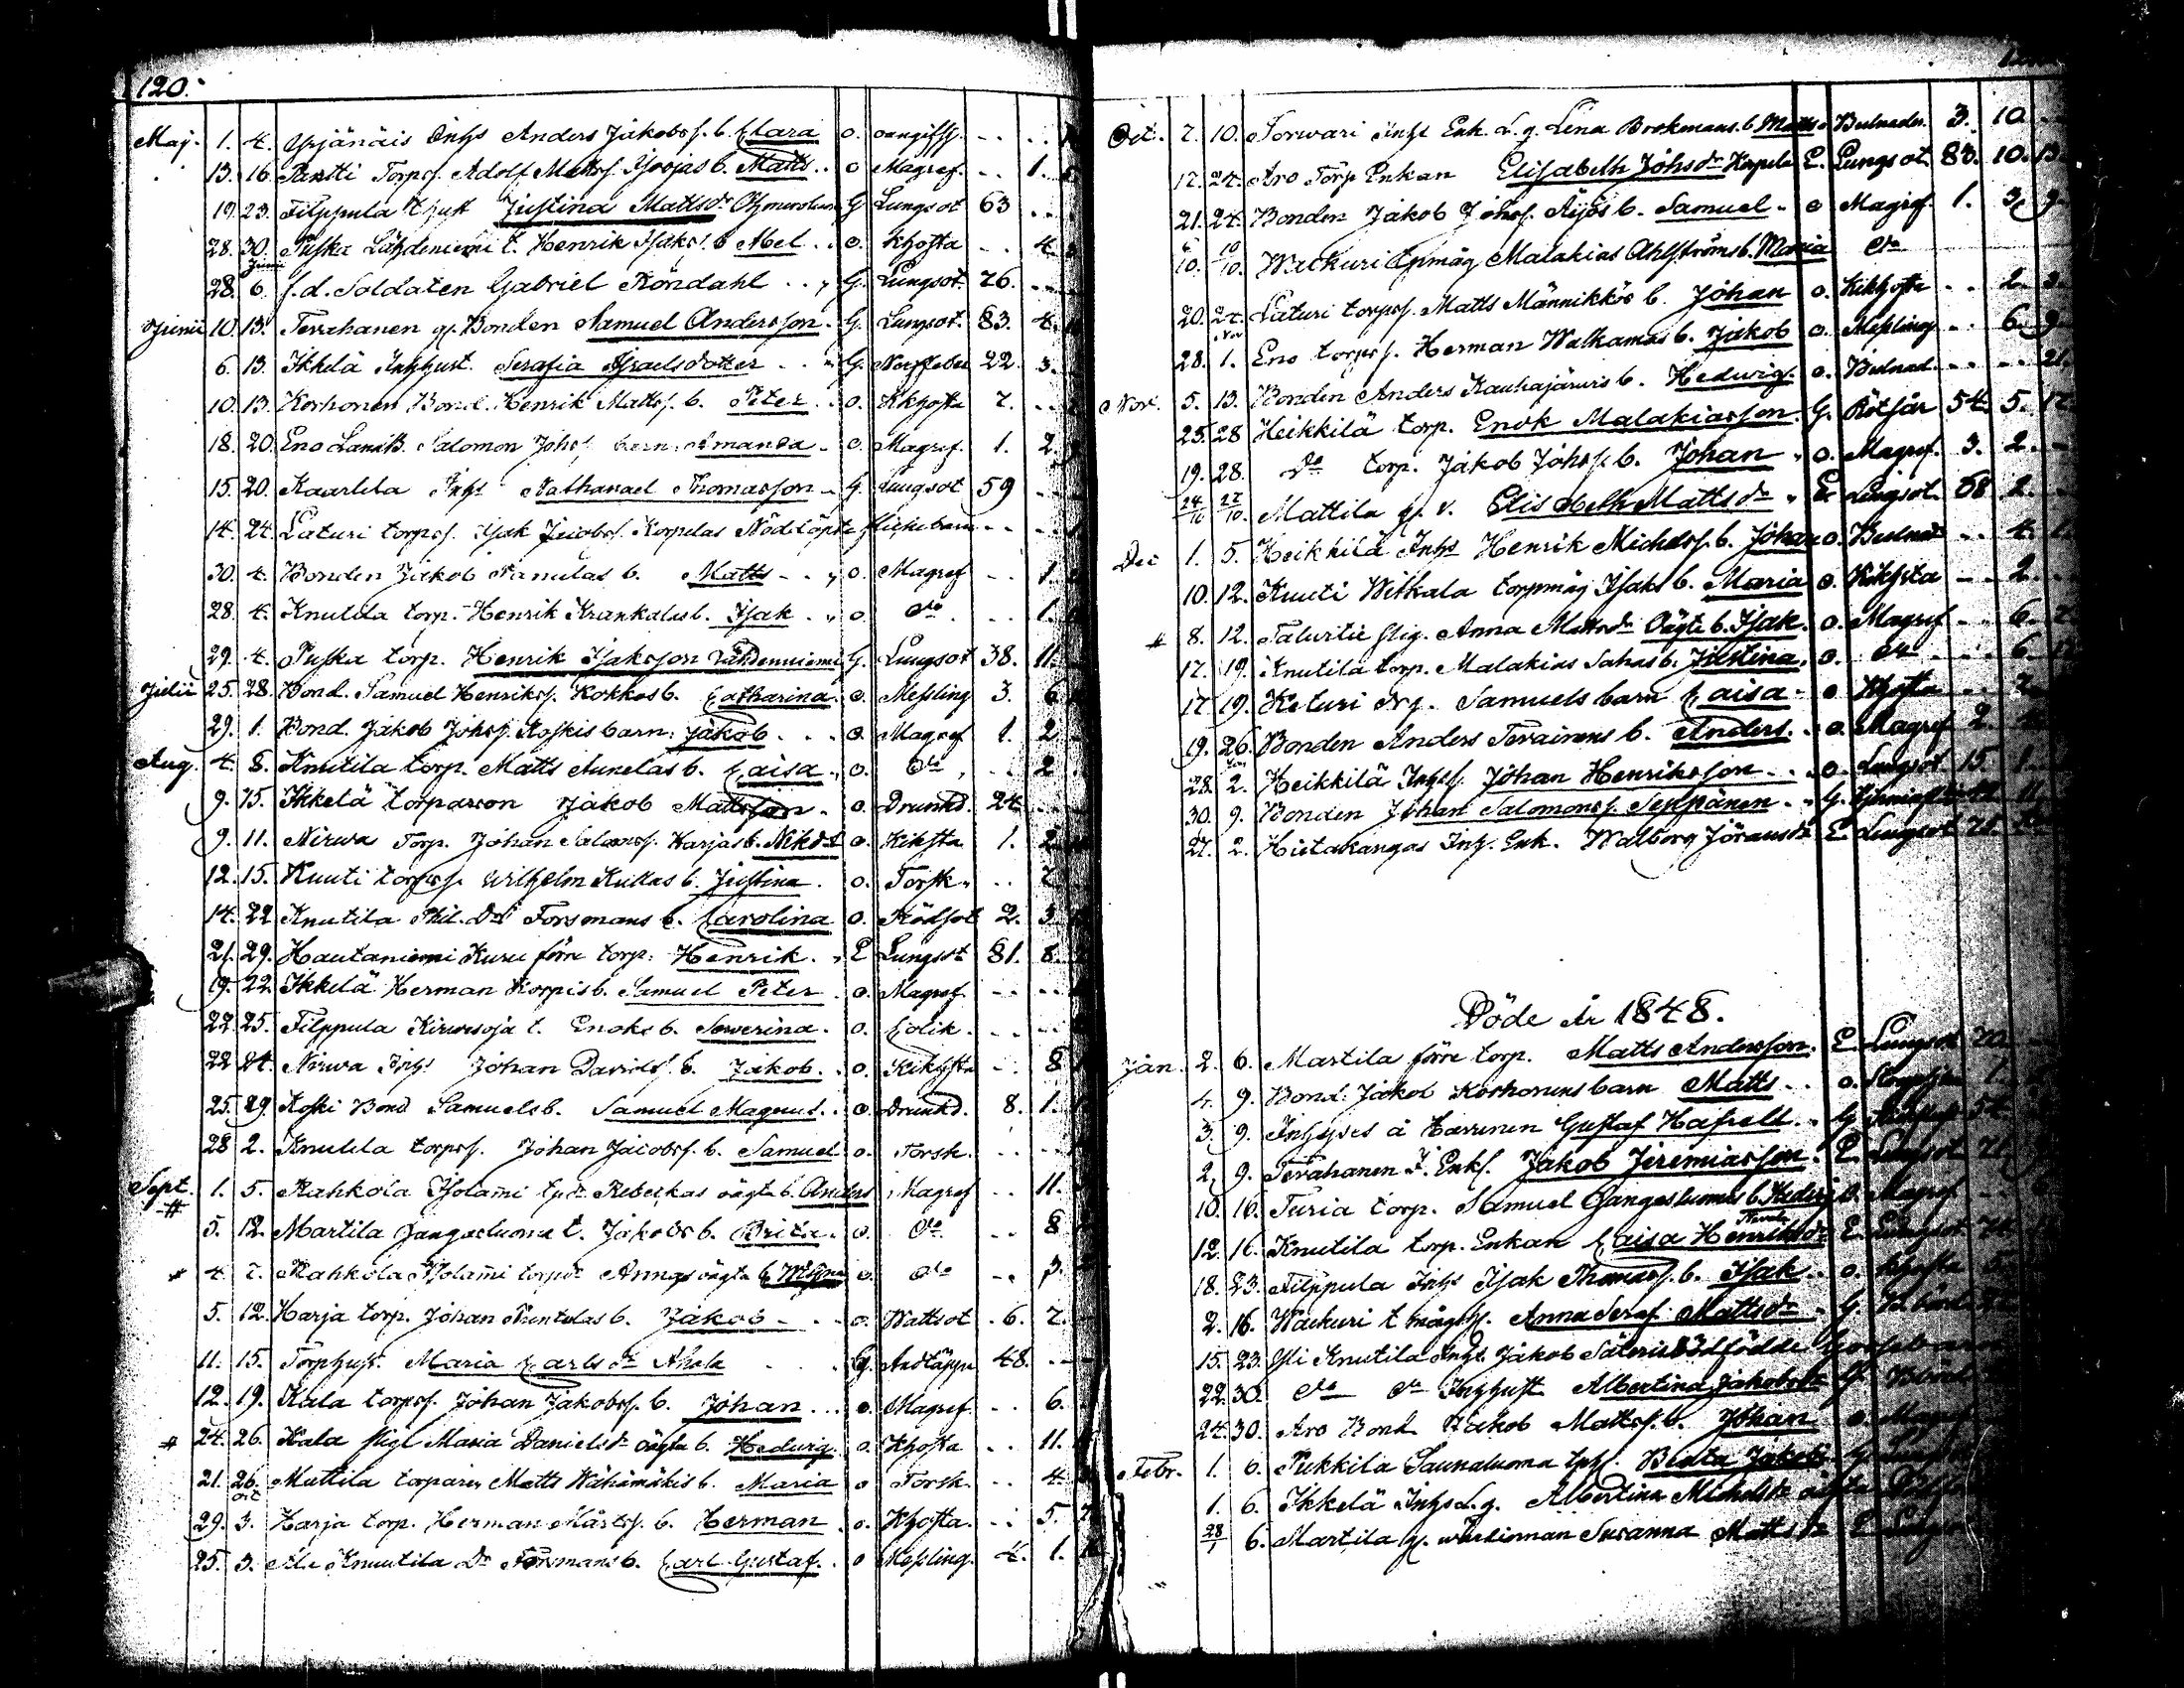 120.
Maj. 1. 4. Yrjänäis Inhs Anders Jakobss. b. Clara o. oangifft . . . .
13. 16. Pantti Torps. Adolf Matts. Yrjas b. Matts . . o Magref. . . 1.
19. 23. Filppula Justina Mattsdr G Lungsot 63 . .
28. 30. Puska Lähdeniemi t. Henrik Isaks. b. Abel . . o. Khosta . . 4.
28. Junii 6. f.d. Soldaten Gabriel Röndahl . . G. Lungsot. 76. . .
Junii 10. 13. Terrahanen gl. Bonden Samuel Andersson. G. Lungsot. 83. 4.
6. 13. Ikkelä Inhhust. Serafia Israelsdotter . . G. Nerffeber 22. 3.
10. 13. Korhonen Bond. Henrik Mattss. b. Peter . . o. Kkhosta 7. . .
18. 20. Eno Salomon Johss. barn Amanda . o. Magref. 1. 2.
15. 20. Kaarlela Inhs Nathanael Thomasson . G. Lungsot 59 . .
14. 24. Laturi torpss. Isak Jacobss. Korpelas Nödtöpte flickebarn . . . .
30. 4. Bonden Jakob Panulas b. Matts . . o. Magref . . 1.
28. 4. Knutila torp. Henrik Krankalas b. Isak . . o. do . . 1.
29. 4. Puska torp. Henrik Isaksson Lähdenniemi G. Lungsot 38. 11.
Julii 25. 28. Bond. Samuel Henrikss. Kokkos b. Catharina. o. Messling 3. 6
29. 1. Bond. Jakob Johss. Koskis barn Jakob . . . o. Magref 1. 2
Aug. 4. 8. Knutila torp. Matts Aunelas b. Caisa . o. do . . . 2
9. 15. Ikkelä torparson Jakob Mattsson . o. Drunkd. 24. . .
9. 11. Nirwa Torp. Johan Salomss. Harjas b. o. Kikhsta 1. 2
12. 15. Knuti torpss. Wilhelm Kukkas b. Justina . o. Torsk. . . 7
14. 22 Knutila Phil. Dr Forsmans b. Carolina o. Rödsot 2. 3.
21. 29. Hautaniemi Kuru förre torp. Henrik . . E Lungsot 81. 8.
19. 22. Ikkelä Herman Korpis b. Samuel Peter . o. Magref . . . .
22. 25. Filppula Kirwesoja t. Enoks b. Sewerina . o. Colik. . . . .
22 24. Nirwa Inhs Johan Davidss. b. Jakob . . o. Kikhsta . . 8
25. 29. Koski Bond Samuels b. Samuel Magnus . . o. Drunkd. 8. 1.
28 2. Knutila torpss. Johan Jacobss. b. Samuel o. Torsk. . . . .
Sept. 1. 5. Rahkola Isolami tpdr Rebeckas oägta b. Anders Magref . . 11.
# 5. 12. Martila Gangasluoma t. Jakobs b. Brita . o. do . . 8
# 4. 7. Rahkola Isolami torpdr Annas oägta b. o. do . . 3.
5. 12. Harja torp. Johan Puntulas b. Jakob . . . o. Wattsot . 6. 7.
11. 15. Torphust. Maria Carlsdr Ahola . . . G. Andtäppa 48. . .
12. 19. Kala torpss. Johan Jakobss. b. Johan . . . o. Magref . . 6.
# 24. 26. Kala Pigl Maria Danielsdr oägta b. Hedwig. o. Khosta . . 11.
21. 26. Mattila torparen Matts Wähämäkis b. Maria o Torsk. . . 4
29. oct 3. Harja torp. Herman Mårtss. b. Herman o. Khosta . . 5.
25. 3. Knuutila Dr Forsmans b. Carl Gustaf. . o Messling. 4. 1.
Oct. 7. 10. Torwari Inhs Enk. L. g. Lena Brokmans. b. Matts o Bulnader. 3. 10.
17. 24. Aro Torp Enkan Elisabeth Johsdr Korpela E. Lungsot 83. 10. 13.
21. 24. Bonden Jakob Johss. Äijös b. Samuel . o Magref. 1. 3. 9.
6/10. 10/10. Wäckuri tpmåg Malakias Ahlströms b. Maria do
20. 24. Laturi torpss. Matts Männikkös b. Johan o. Kikhosta . . 2. 3.
28. Nov 1. Eno torpss. Herman Walkamas b. Jakob o. Messling . . 6. 9.
Nov. 5. 13. Bonden Anders Kauhajärwis b. Hedwig . o. Bulnad . . . . 21.
25. 28 Heikkilä torp. Enok Malakiasson . G. Rötsår 54. 5. 17.
19. 28. do torp. Jakob Johss. b. Johan . o. Magref. 3. 2. . .
24/10 27/10. Mattila gl. v. Elisabeth Mattsdr . E Lungsot. 68 2. . .
Dec 1. 5. Heikkilä Inhs Henrik Michelss. b. Johan o. Bulnad . . 4. 1.
10. 12. Knuti Witkala torpmåg Isaks b. Maria o. Kikhsta . . 2. . .
# 8. 12. Talwitie Pig. Anna Mattsdr Oägta b. Isak . o. Magref . . 6. 7.
17. 19. Knutila torp. Malakias Sahas b. Justina . o. do . . 6. 17
17. 19. Keturi Samuels barn Caisa . o Khosta . . 2.
19. 26. Bonden Anders b. Anders . . o. Magref 2. 4.
28. 2. Heikkilä Inhss. Johan Henriksson . . . o. Lungsot 15. 1.
30. 9. Bonden Johan Salomonss. Seppänen . . G.
27. 2. Hietakangas Inh. Enk. Walborg Jöransdr E Lungsot
Döde År 1848.
Jan. 2. 6. Martila förre torp. Matts Andersson. E. Lungsot 70.
4. 9. Bond. Jakob Korhonens barn Matts . . o.
3. 9. Inhyses å Havunen Gustaf Hafrelt . . G
2. 9. Terrahanen F. Enkl. Jakob Jeremiasson . E. Lungsot 71.
10. 16. Turja torp. Samuel Gangasluomas b. Hedwig o. Magref
12. 16. Knutila torp. Enkan Caisa Henriksdr E. Lungsot
18. 23. Filppula Inhs Isak Thomass. b. Isak . . o. Khosta
2. 16. Wäckuri t mågh. Anna Seraf. Mattsdr . G.
15. 23. Yli Knutila Inhs Jakob dödfödde Gossebarn
22. 30. do do Inhhust Albertina Jakobsdr G.
24. 30. Aro Bond Jakob Mattss. b. Johan o. Magref
Febr. 1. 6. Pukkila Saunaluoma Beata
1. 6. Ikkelä Inhs L. g. Albertina Michelsdr oägta
28/1 6. Martila gl. wärdinnan Susanna Mattsdr E